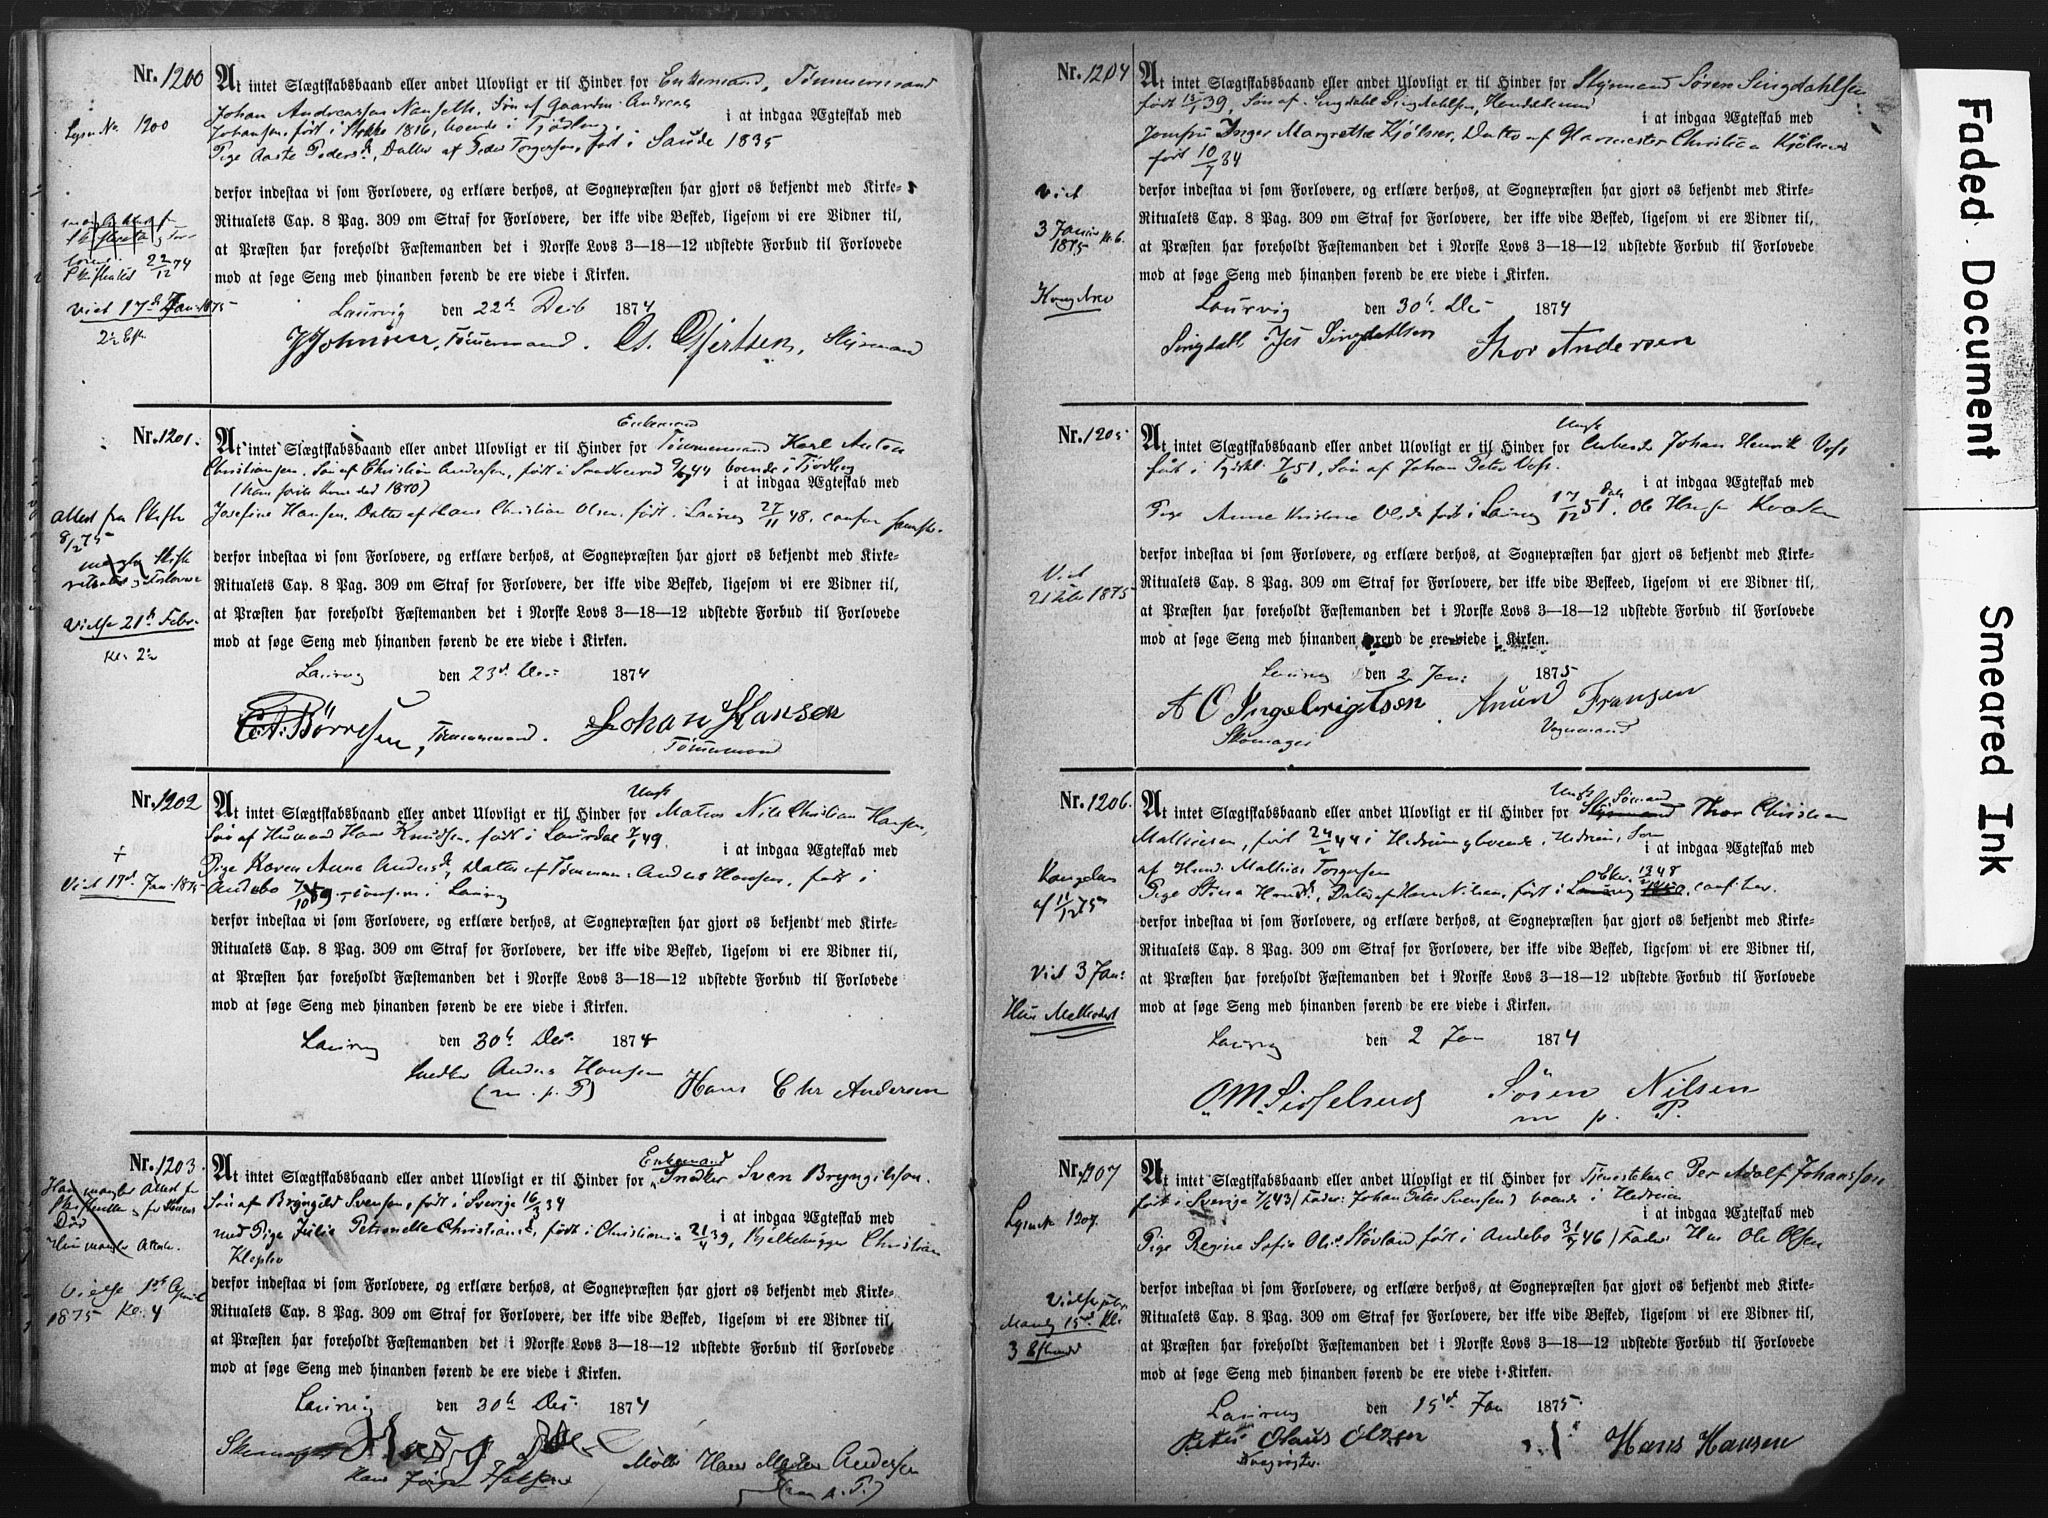 Nr. 1200
At intet Slægtskabsbaand eller andet Ulovligt er til Hinder for Enkemand, Tømmermand
Johan Andreassen Søn af Gaardm. Andreas
i at indgaa Ægteskab med
Johansen, født i Stokke 1816, boende i Tjødling.
Lysn No. 1200
Pige Aaste Pedersd., Datter af Peder Torgersen, født i Saude 1835
derfor indestaa vi som Forlovere, og erklære derhos, at Sognepræsten har gjort os bekjendt med Kirke-
Ritualets Cap. 8 Pag. 309 om Straf for Forlovere, der ikke vide Besked, ligesom vi ere Vidner til,
at Præsten har foreholdt Fæstemanden det i Norske Lovs 3—18—12 udstedte Forbud til Forlovede
mod at søge Seng med hinanden førend de ere viede i Kirken.
22/12 74
Viet 17de Jan 1875
Laurvig den 22de Decb 1874
J Johnsen, Tømmermand. Gjertsen, Styrmand
Nr. 1201.
Enkemand
At intet Slægtskabsbaand eller andet Ulovligt er til Hinder for Tømmermand Karl Anton
Christiansen, Søn af Christian Andersen, født i Sandherred 44 boende i Tjødling
i at indgaa Ægteskab med
(hans forrige Kone død 1870)
Josefine Hansen, Datter af Hans Christian Olsen, født i Laurvig 27/11 48.
Attest fra Skifte
8/2 75
derfor indestaa vi som Forlovere, og erklære derhos, at Sognepræsten har gjort os bekjendt med Kirke-
Ritualets Cap. 8 Pag. 309 om Straf for Forlovere, der ikke vide Besked, ligesom vi ere Vidner til,
at Præsten har foreholdt Fæstemanden det i Norske Lovs 3—18—12 udstedte Forbud til Forlovede
mod at søge Seng med hinanden førend de ere viede i Kirken.
Vielse 21de Febr.
Laurvig den 23de Dec 1874
Børresen, Tømmermand. Johan Hansen
Tømmermand
Nr. 1202
Ungk
At intet Slægtskabsbaand eller andet Ulovligt er til Hinder for Matros Nils Christian Hansen,
Søn af Husmand Hans Knudsen, født i Laurdal 49.
i at indgaa Ægteskab med
Pige Karen Anna Andersd., Datter af Tømmerm: Anders Hansen, født i
Andebo
Viet 17de Jan 1875
derfor indestaa vi som Forlovere, og erklære derhos, at Sognepræsten har gjort os bekjendt med Kirke-
Ritualets Cap. 8 Pag. 309 om Straf for Forlovere, der ikke vide Besked, ligesom vi ere Vidner til,
at Præsten har foreholdt Fæstemanden det i Norske Lovs 3—18—12 udstedte Forbud til Forlovede
mod at søge Seng med hinanden førend de ere viede i Kirken.
Laurvig den 30te Dec. 1874
Snedker Anders Hansen
(m. p. P) Hans Chr Andersen
Nr. 1203.
Enkemand
At intet Slægtskabsbaand eller andet Ulovligt er til Hinder for Snedker Sven Bryngilsson.
Søn af Bryngild Svensen, født i Sverige 16/3 34
i at indgaa Ægteskab med
med Pige Julie Petronelle Christiansd., født i Christiania 21/4 39, Christian
derfor indestaa vi som Forlovere, og erklære derhos, at Sognepræsten har gjort os bekjendt med Kirke-
Ritualets Cap. 8 Pag. 309 om Straf for Forlovere, der ikke vide Besked, ligesom vi ere Vidner til,
at Præsten har foreholdt Fæstemanden det i Norske Lovs 3—18—12 udstedte Forbud til Forlovede
mod at søge Seng med hinanden førend de ere viede i Kirken.
Vielse 1ste April
1875 Kl. 4
Laurvig den 30te Dec. 1874
Skomager
Hans Jørgen Møller Hans Andersen
(m. p. P.)
Nr. 1204
At intet Slægtskabsbaand eller andet Ulovligt er til Hinder for Styrmand Søren Singdahlsen
født 39, Søn af Singdahl Singdahlsen,
i at indgaa Ægteskab med
Jomfru Inger Margrethe Kjølner, Datter af Glarmester Christian Kjølner
født 10/7 34
Viet
3 Januar Kl. 6.
1875
Kongebrev
derfor indestaa vi som Forlovere, og erklære derhos, at Sognepræsten har gjort os bekjendt med Kirke-
Ritualets Cap. 8 Pag. 309 om Straf for Forlovere, der ikke vide Besked, ligesom vi ere Vidner til,
at Præsten har foreholdt Fæstemanden det i Norske Lovs 3—18—12 udstedte Forbud til Forlovede
mod at søge Seng med hinanden førend de ere viede i Kirken.
Laurvig den 30te Dec 1874
Singdahl Singdahlsen Thor Andersen
Nr. 1205
Ungk
At intet Slægtskabsbaand eller andet Ulovligt er til Hinder for Arbeider Johan Henrik Voss
født i Tydskl. 7/6 51, Søn af Johan Peter Voss.
i at indgaa Ægteskab med
Pige Anne Kristine Olsd. født i Laurvig 17/12 51. Ole Hansen
Viet
21 Febr 1875
derfor indestaa vi som Forlovere, og erklære derhos, at Sognepræsten har gjort os bekjendt med Kirke-
Ritualets Cap. 8 Pag. 309 om Straf for Forlovere, der ikke vide Beskeed, ligesom vi ere Vidner til,
at Præsten har foreholdt Fæstemanden det i Norske Lovs 3—18—12 udstedte Forbud til Forlovede
mod at søge Seng med hinanden førend de ere viede i Kirken.
Laurvig den 2 Jan: 1875
A C Ingebrigtsen. Anund Fransen
Skomager Vognmand
Nr. 1206.
Ungk Sømand
At intet Slægtskabsbaand eller andet Ulovligt er til Hinder for Styrmand Thor Christian
Mathisen, født 24/2 44 i Hedrum, boende i Hedrum, Søn
i at indgaa Ægteskab med
af Husm. Mathias Torgersen
Pige Stina Hansd., Datter af Hans Nilsen, født i Laurvig
Viet 3 Jan:
derfor indestaa vi som Forlovere, og erklære derhos, at Sognepræsten har gjort os bekjendt med Kirke-
Ritualets Cap. 8 Pag. 309 om Straf for Forlovere, der ikke vide Besked, ligesom vi ere Vidner til,
at Præsten har foreholdt Fæstemanden det i Norske Lovs 3—18—12 udstedte Forbud til Forlovede
mod at søge Seng med hinanden førend de ere viede i Kirken.
Laurvig den 2 Jan 1874
Søren Nilsen
m p. P.
Nr. 1207
At intet Slægtskabsbaand eller andet Ulovligt er til Hinder for Tjenestekarl Per Adolf Johansson
født i Sverige 7/6 43 (Fader: Johan Peter Svensen) boende i Hedrum
i at indgaa Ægteskab med
Lysn No 1207.
Pige Regine Sofie Olsd. Støvland født i Andebo 31/7 46 (Fader Hm Ole Olsen
derfor indestaa vi som Forlovere, og erklære derhos, at Sognepræsten har gjort os bekjendt med Kirke-
Ritualets Cap. 8 Pag. 309 om Straf for Forlovere, der ikke vide Besked, ligesom vi ere Vidner til,
at Præsten har foreholdt Fæstemanden det i Norske Lovs 3—18—12 udstedte Forbud til Forlovede
mod at søge Seng med hinanden førend de ere viede i Kirken.
Laurvig den 15de Jan 1875
Peter Olaus Olsen Hans Hansen
Faded Document
Smeared Ink